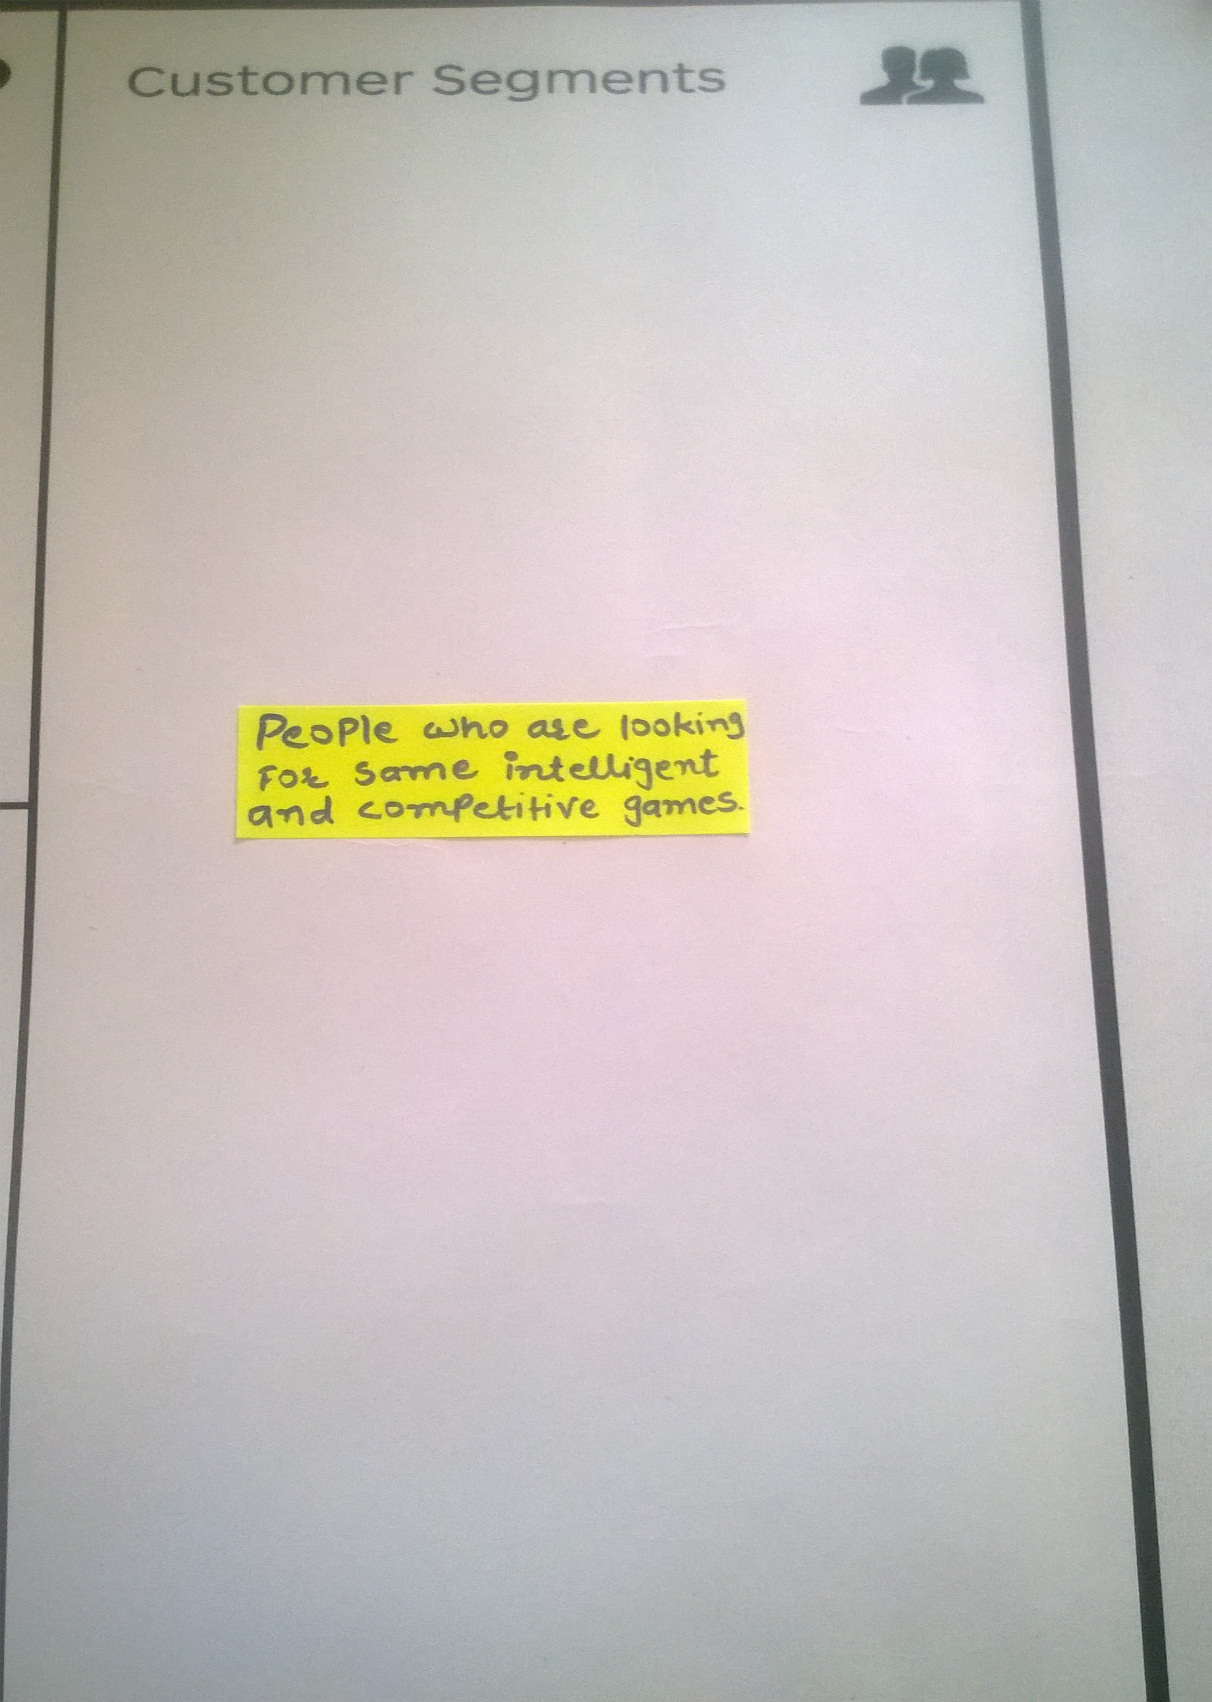 Customer Segments
People who are looking
For same intelligent
and competitive games.